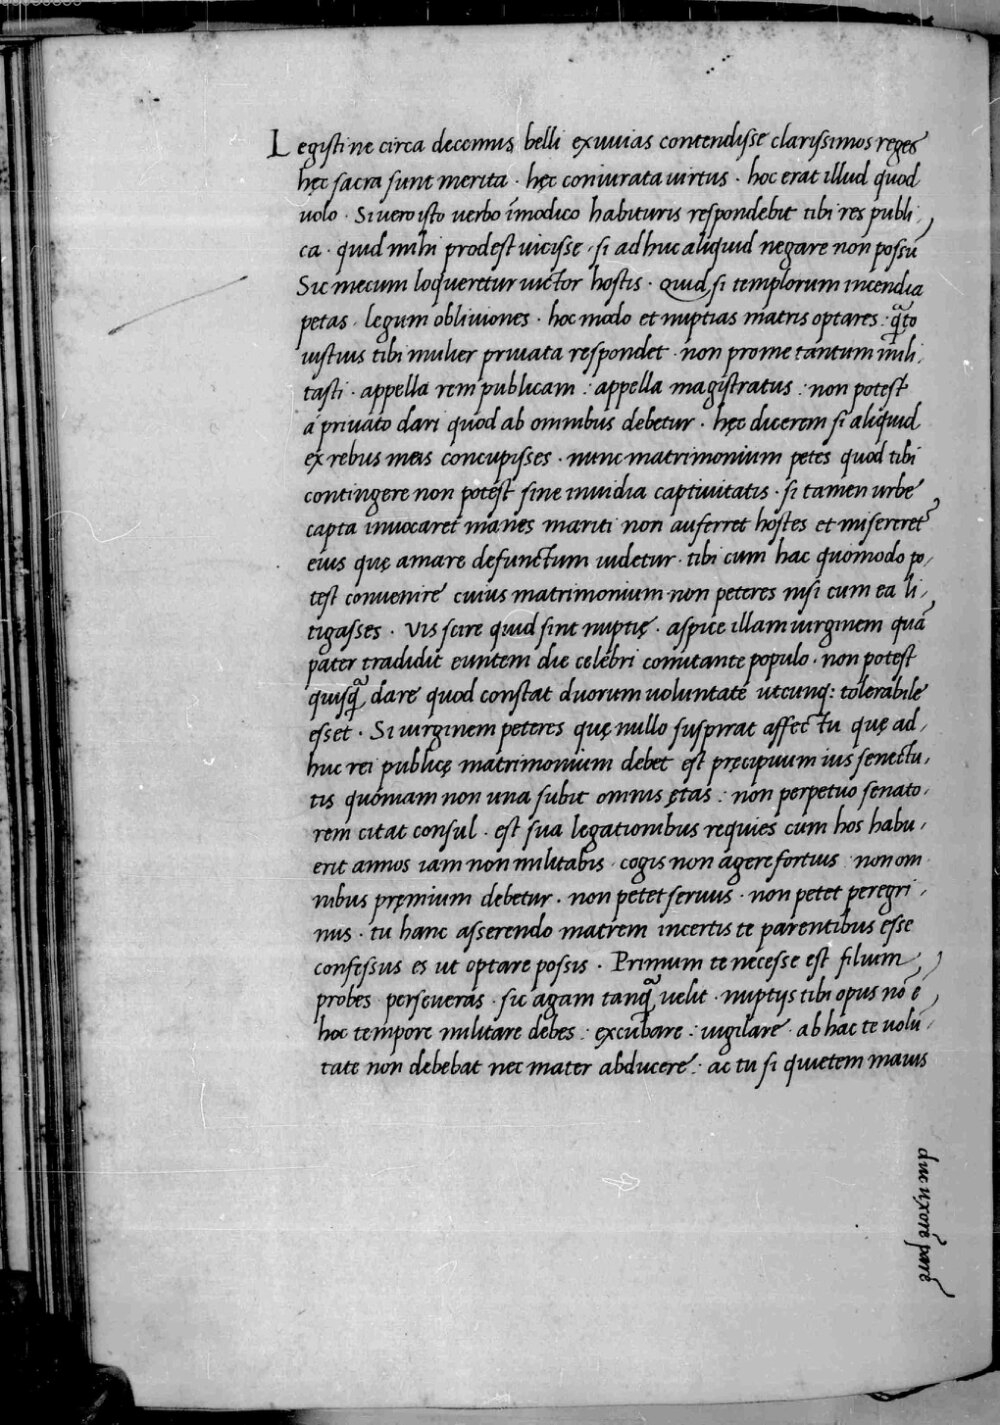 Legistine circa decennis belli exuuias contendisse clarissimos reges
hęc sacra sunt merita · hęc coniurata uirtus · hoc erat illud quod
uolo · Si uero isto uerbo ĩmodico habituris respondebit tibi res publi,
ca · quid mihi prodest uicisse · si adhuc aliquid negare non possũ
Sic mecum loqueretur uictor hostis · Quid si templorum incendia
petas · legum obliuiones · hoc modo et nuptias matris optares : q̃to
iustius tibi mulier priuata respondet · non pro me tantum mili,
tasti · appella rem publicam : appella magistratus : non potest
a priuato dari quod ab omnibus debetur · hęc dicerem si aliquid
ex rebus meis concupisses · nunc matrimonium petes quod tibi
contingere non potest sine inuidia captiuitatis · si tamen urbe
capta inuocaret manes mariti non auferret hostes et misereret̃
eius quę amare defunctum uidetur · tibi cum hac quomodo po,
test conuenire cuius matrimonium non peteres nisi cum ea li,
tigasses · Vis scire quid sint nuptię · aspice illam uirginem quã
pater tradidit euntem die celebri comitante populo · non potest
quisq̃ dare quod constat duorum uoluntate utcunq: tolerabile
esset · Si uirginem peteres quę nullo suspirat affectu quę ad,
huc rei publicę matrimonium debet est pręcipuum ius senectu,
tis quoniam non una subit omnis ętas : non perpetuo senato,
rem citat consul · est sua legationibus requies cum hos habu,
erit annos iam non militabis · cogis non agere fortius · non om
nibus pręmium debetur · non petet seruus · non petet peregri,
nus · tu hanc asserendo matrem incertis te parentibus esse
confessus es ut optare possis · Primum te necesse est filium,
probes perseueras · sic agam tanq̃ uelit · nuptijs tibi opus nõ ẽ
hoc tempore militare debes : excubare : uigilare · ab hac te uolũ
tate non debebat nec mater abducere : ac tu si quietem mauis
duc uxorẽ parẽ